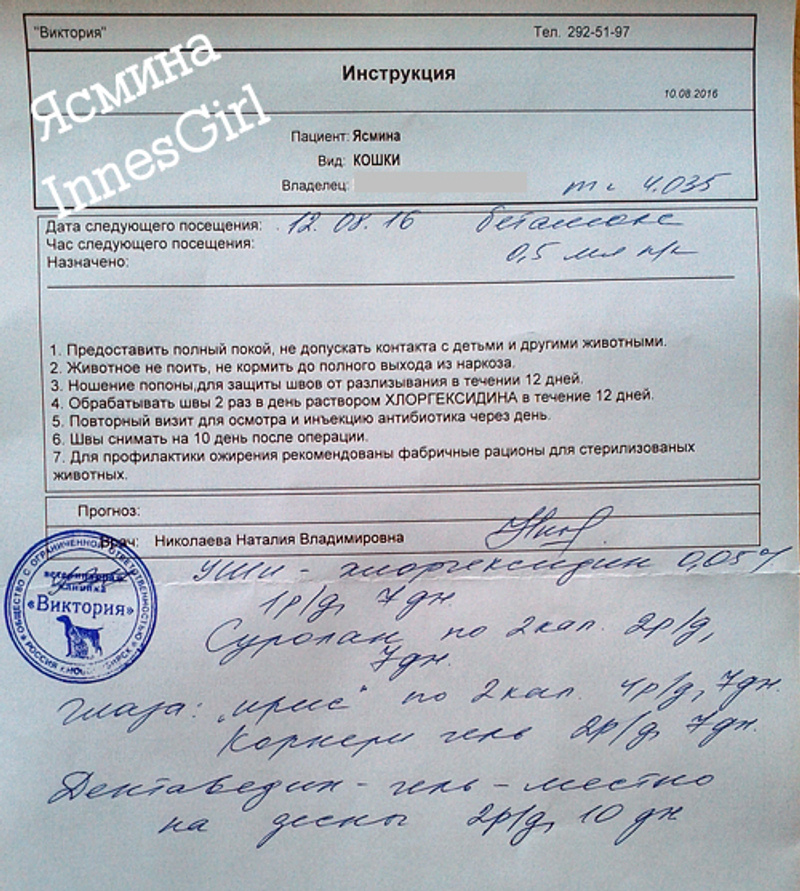 "Виктория"
Тел. 292-51-97
Ясмина
InnesGirl
Инструкция
10.08.2016
Пациент: Ясмина
Вид: КОШКИ
Владелец:
т = 4.035
Дата следующего посещения: 12.08.16 бетамокс
Час следующего посещения:
0,5 мл п/к
Назначено:
1. Предоставить полный покой, не допускать контакта с детьми и другими животными.
2. Животное не поить, не кормить до полного выхода из наркоза.
3. Ношение попоны,для защиты швов от разлизывания в течении 12 дней.
4. Обрабатывать швы 2 раз в день раствором ХЛОРГЕКСИДИНА в течение 12 дней.
5. Повторный визит для осмотра и инъекцию антибиотика через день.
6. Швы снимать на 10 день после операции.
7. Для профилактики ожирения рекомендованы фабричные рационы для стерилизованых
животных.
Прогноз:
Врач: Николаева Наталия Владимировна
ОБЩЕСТВО С ОГРАНИЧЕННОЙ ОТВЕТСТВЕННОСТЬЮ
ветеринарная
клиника
«Виктория»
РОССИЯ г.НОВОСИБИРСК
УШИ - хлоргексидин 0,05%
1р/д, 7дн.
Суролан по 2кап. 2р/д,
7дн.
Глаза: „ирис" по 2кап. 4р/д, 7дн.
Корнери гель 2р/д, 7дн.
Дентаведин - гель - местно
на десны 2р/д, 10 дн